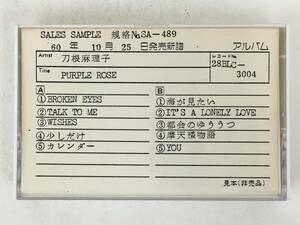 SALES SAMPLE 規格№SA-489
60 年 10 月 25 日発売新譜 アルバム
Artist 刀根麻理子 レコードNo.
28BLC-
Title PURPLE ROSE 3004
A B
①BROKEN EYES ①海が見たい
②TALK TO ME ②IT'S A LONELY LOVE
③WISHES ③都会のゆううつ
④少しだけ ④摩天楼物語
⑤カレンダー ⑤YOU
見本(非売品)